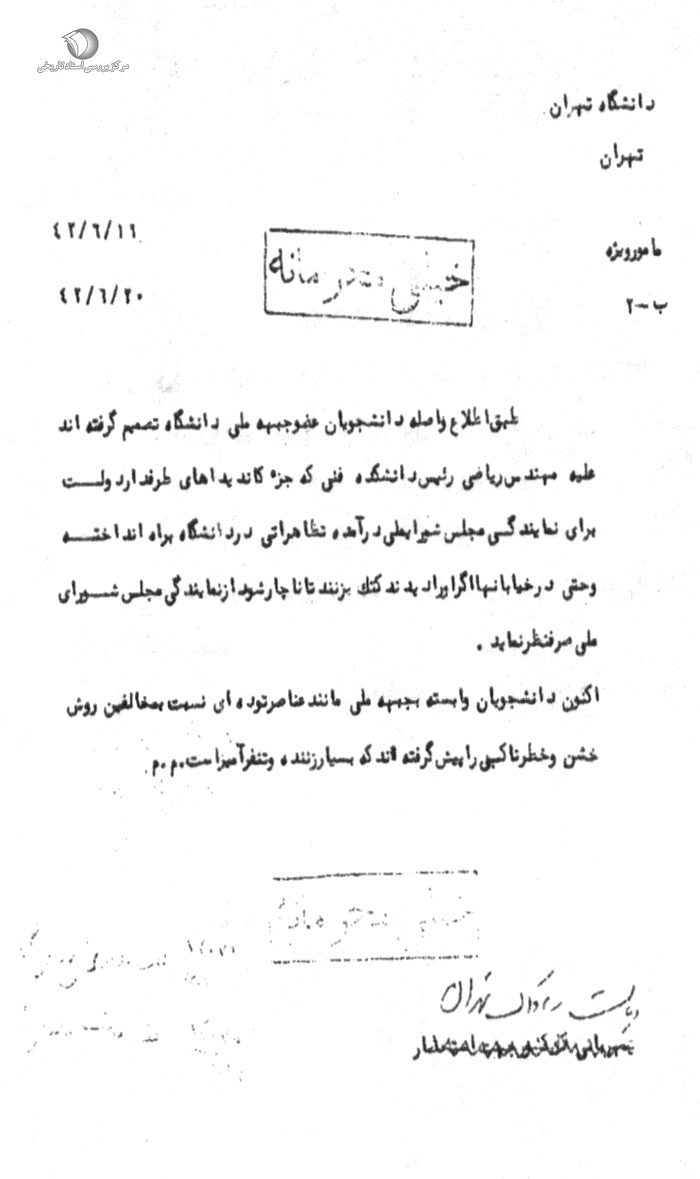 مرکز بررسی اسناد تاریخی
دانشگاه تهران
تهران
٤٢/٦/١٦
مامورویژه
خیلی محرمانه
٤٢/٦/٢٠
ب-٢
طبق اطلاع واصله دانشجویان عضوجبهه ملی دانشگاه تصمیم گرفته اند
علیه مهندس ریاضی رئیس دانشکده فنی که جزء کاندیداهای طرفدار دولت
برای نمایندگی مجلس شورایملی درآمده تظاهراتی دردانشگاه براه انداخته
وحتی درخیابانها اگراورا دیدند کتك بزنند تا ناچارشود ازنمایندگی مجلس شورای
ملی صرفنظر نماید .
اکنون دانشجویان وابسته بجبهه ملی مانند عناصر توده ای نسبت بمخالفین روش
خشن وخطرناکی را پیش گرفته اند که بسیار زننده وتنفرآمیز است . م . م
خیلی محرمانه
ریاست ساواك تهران